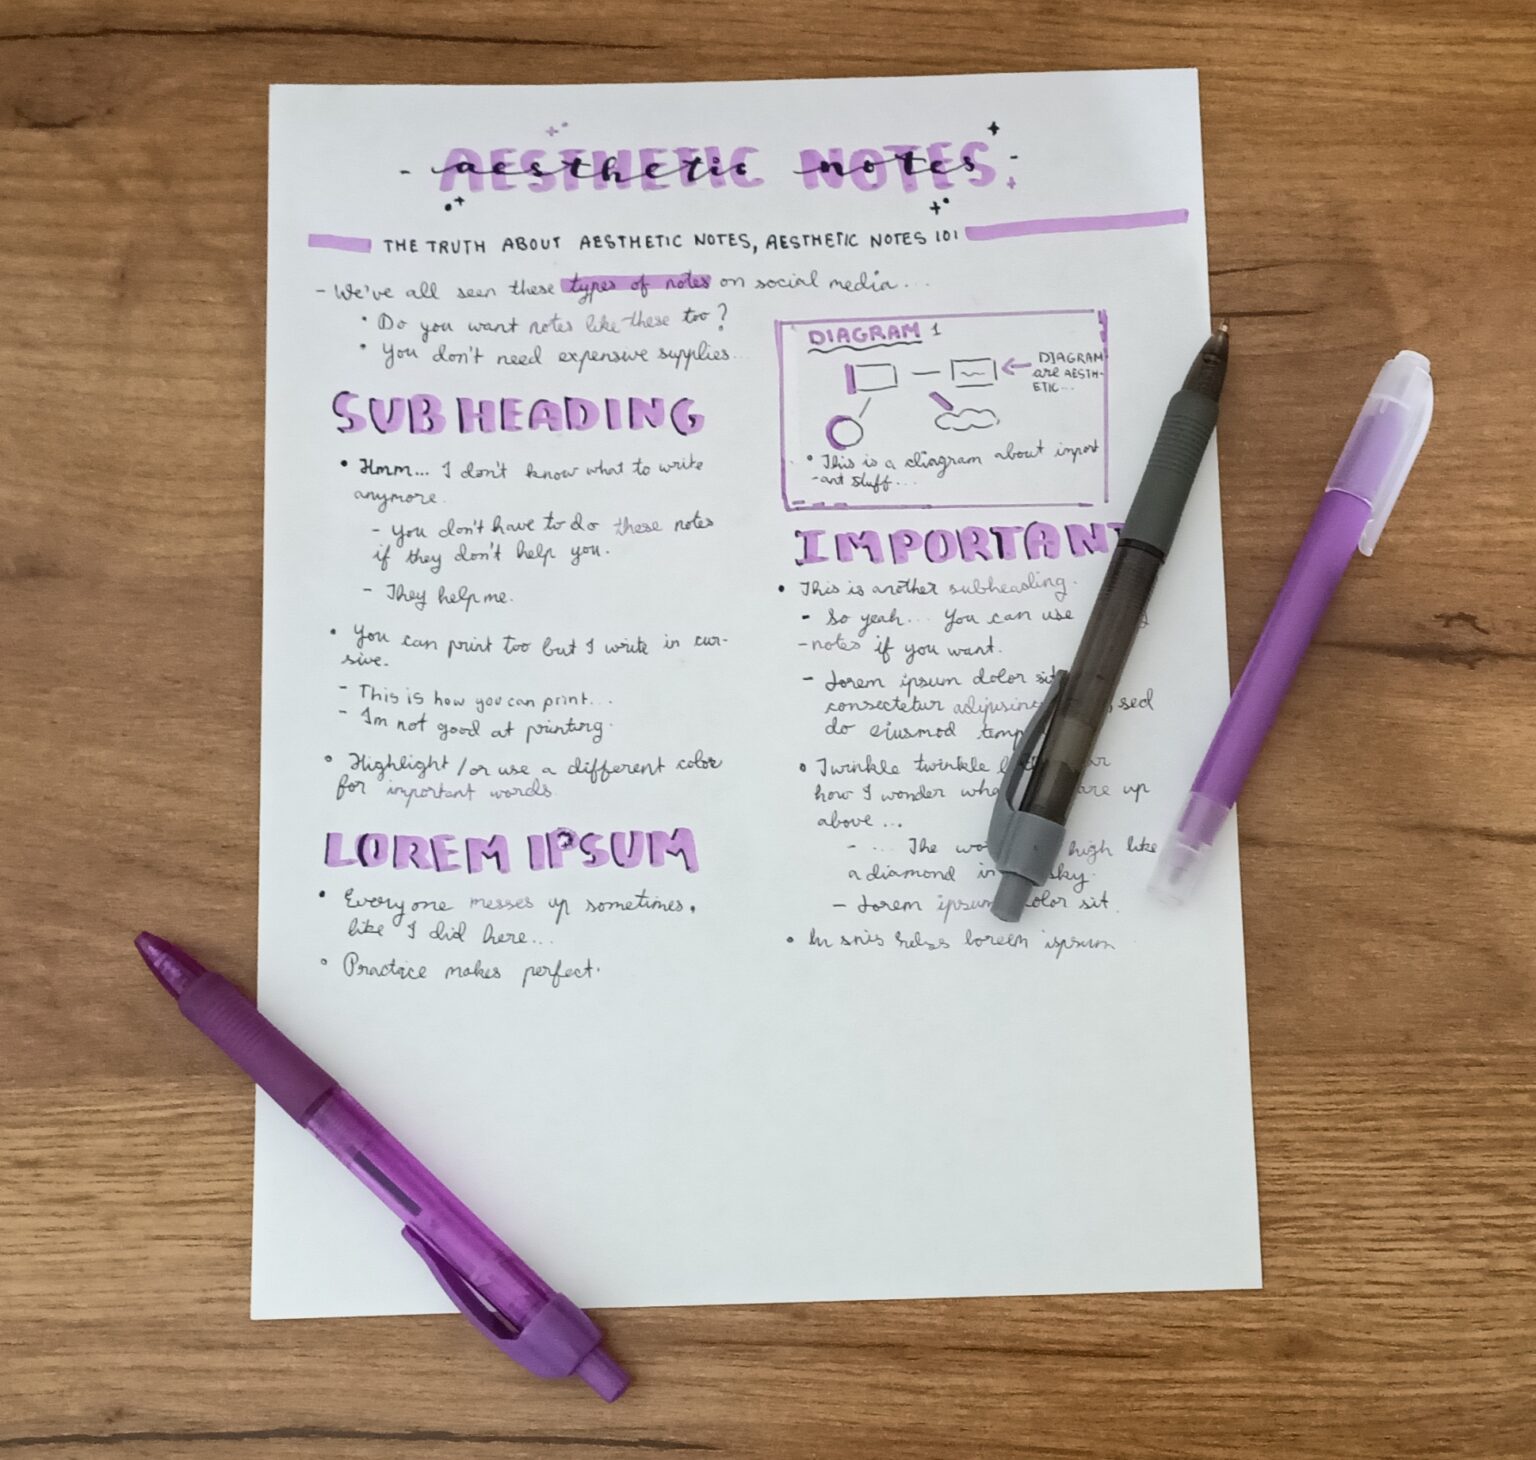 AESTHETIC NOTES
aesthetic notes
THE TRUTH ABOUT AESTHETIC NOTES, AESTHETIC NOTES 101
- We've all seen these types of notes on social media...
• Do you want notes like these too?
• You don't need expensive supplies...
SUBHEADING
• Hmm... I don't know what to write
anymore.
- You don't have to do these notes
if they don't help you.
- They help me.
• You can print too but I write in cur-
sive.
- This is how you can print...
- Im not good at printing.
• Highlight /or use a different color
for important words
LOREM IPSUM
• Everyone messes up sometimes,
like I did here...
• Practice makes perfect.
DIAGRAM 1
DIAGRAM
are AESTH-
ETIC...
• This is a diagram about import
-ant stuff...
IMPORTANT
• This is another subheading.
- So yeah... You can use
-notes if you want.
- Lorem ipsum dolor sit
consectetur adipising sed
do eiusmod temp
• Twinkle twinkle
how I wonder wha are up
above...
- ... The wo high like
a diamond in sky.
- Lorem ipsum dolor sit.
• lorem ipsum